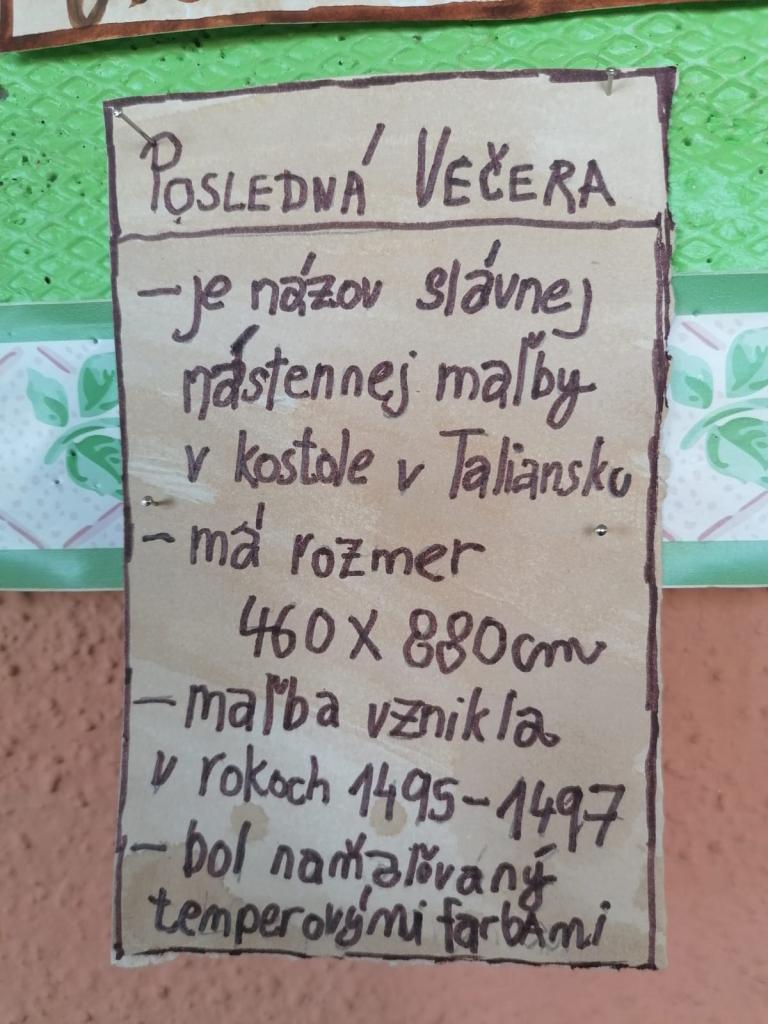 POSLEDNÁ VEČERA
- je názov slávnej
nástennej maľby
v kostole v Taliansku
- má rozmer
460 X 880 cm
- maľba vznikla
v rokoch 1495-1497
- bol namaľovaný
temperovými farbami